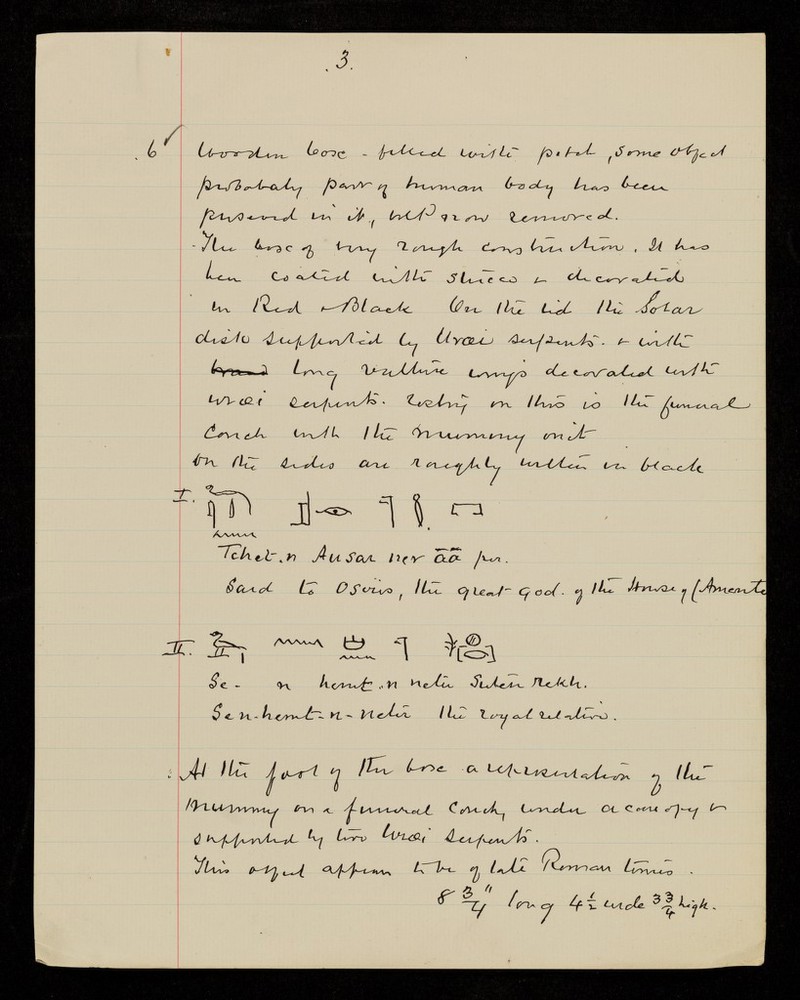 3.
6 Wooden box - filled with pitch, some object
probably part of human body has been
preserved in it, but now removed.
The box of very rough construction. It has
been coated with stucco & decorated
in Red & Black On the lid the Solar
disk supported by Uræi serpents. & with
long vulture wings decorated with
uræi serpents. resting on this is the funeral
Couch with the mummy on it
On the sides are roughly written in black
I.
Tchet.n Ausar neter āā per.
Said to Osiris, the great god. of the House of (Amente
II.
Se- n hemt.n neter Suten rekh.
Sen-hemt-n-neter the royal relative.
At the foot of the box a representation of the
mummy on a funeral couch, under a canopy &
supported by two Uræi serpents.
This object appears to be of late Roman times.
8 3/4" long 4 1/2 wide 3 3/4 high.